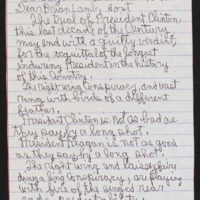 Dear Brian Lamb, Host
The Trial of President Clinton
this last decade of the Century
may end with a guilty verdict,
for the acquittal of the longest
enduring President in the history
of this Country.
The Right wing Conspiracy, and vast
ring with birds of a different
feather.
President Clinton is not as bad as
they say by a long shot.
President Reagan is not as good
as they say by a long shot.
The Right wing and
ding ling Conspiracy, are playing
with fire of the singed rear